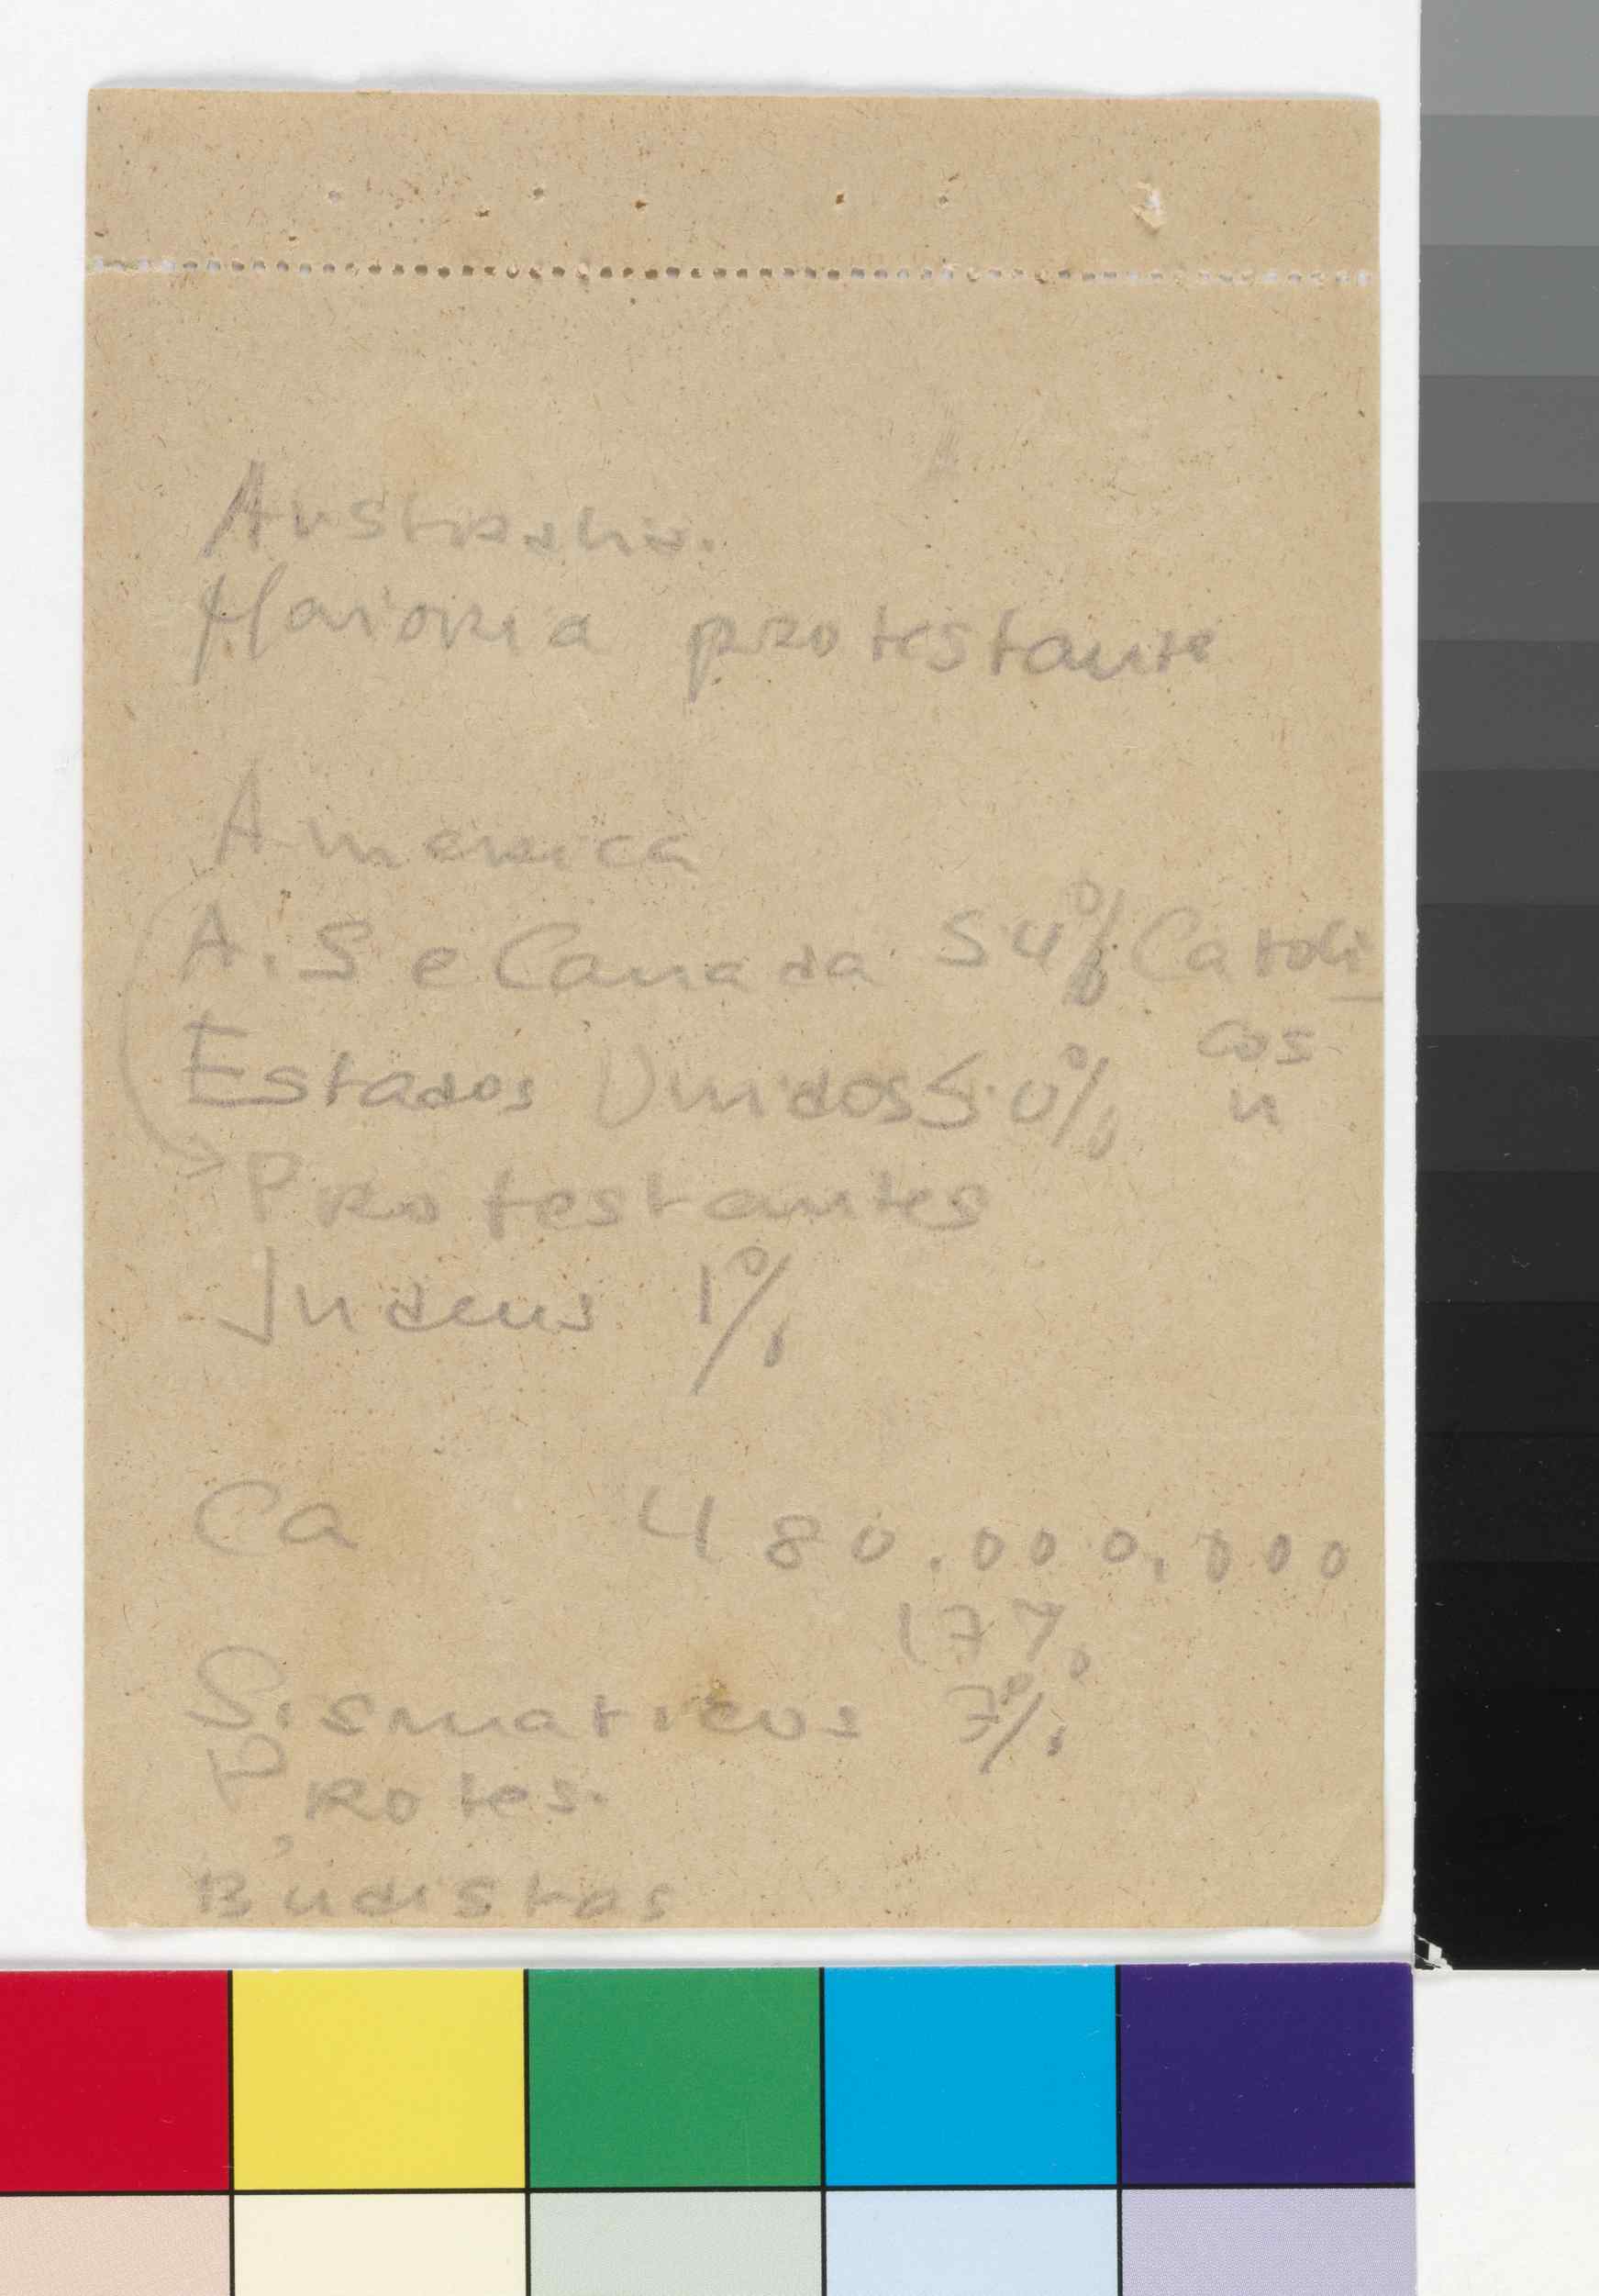 Australia.
Maioria protestante
America
A. S e Canada 54% Catoli
cos
Estados Unidos 50% "
Protestantes
Judeus 1%
Ca 480.000.000
17%
Sismaticos 7%
Protes.
Budistas